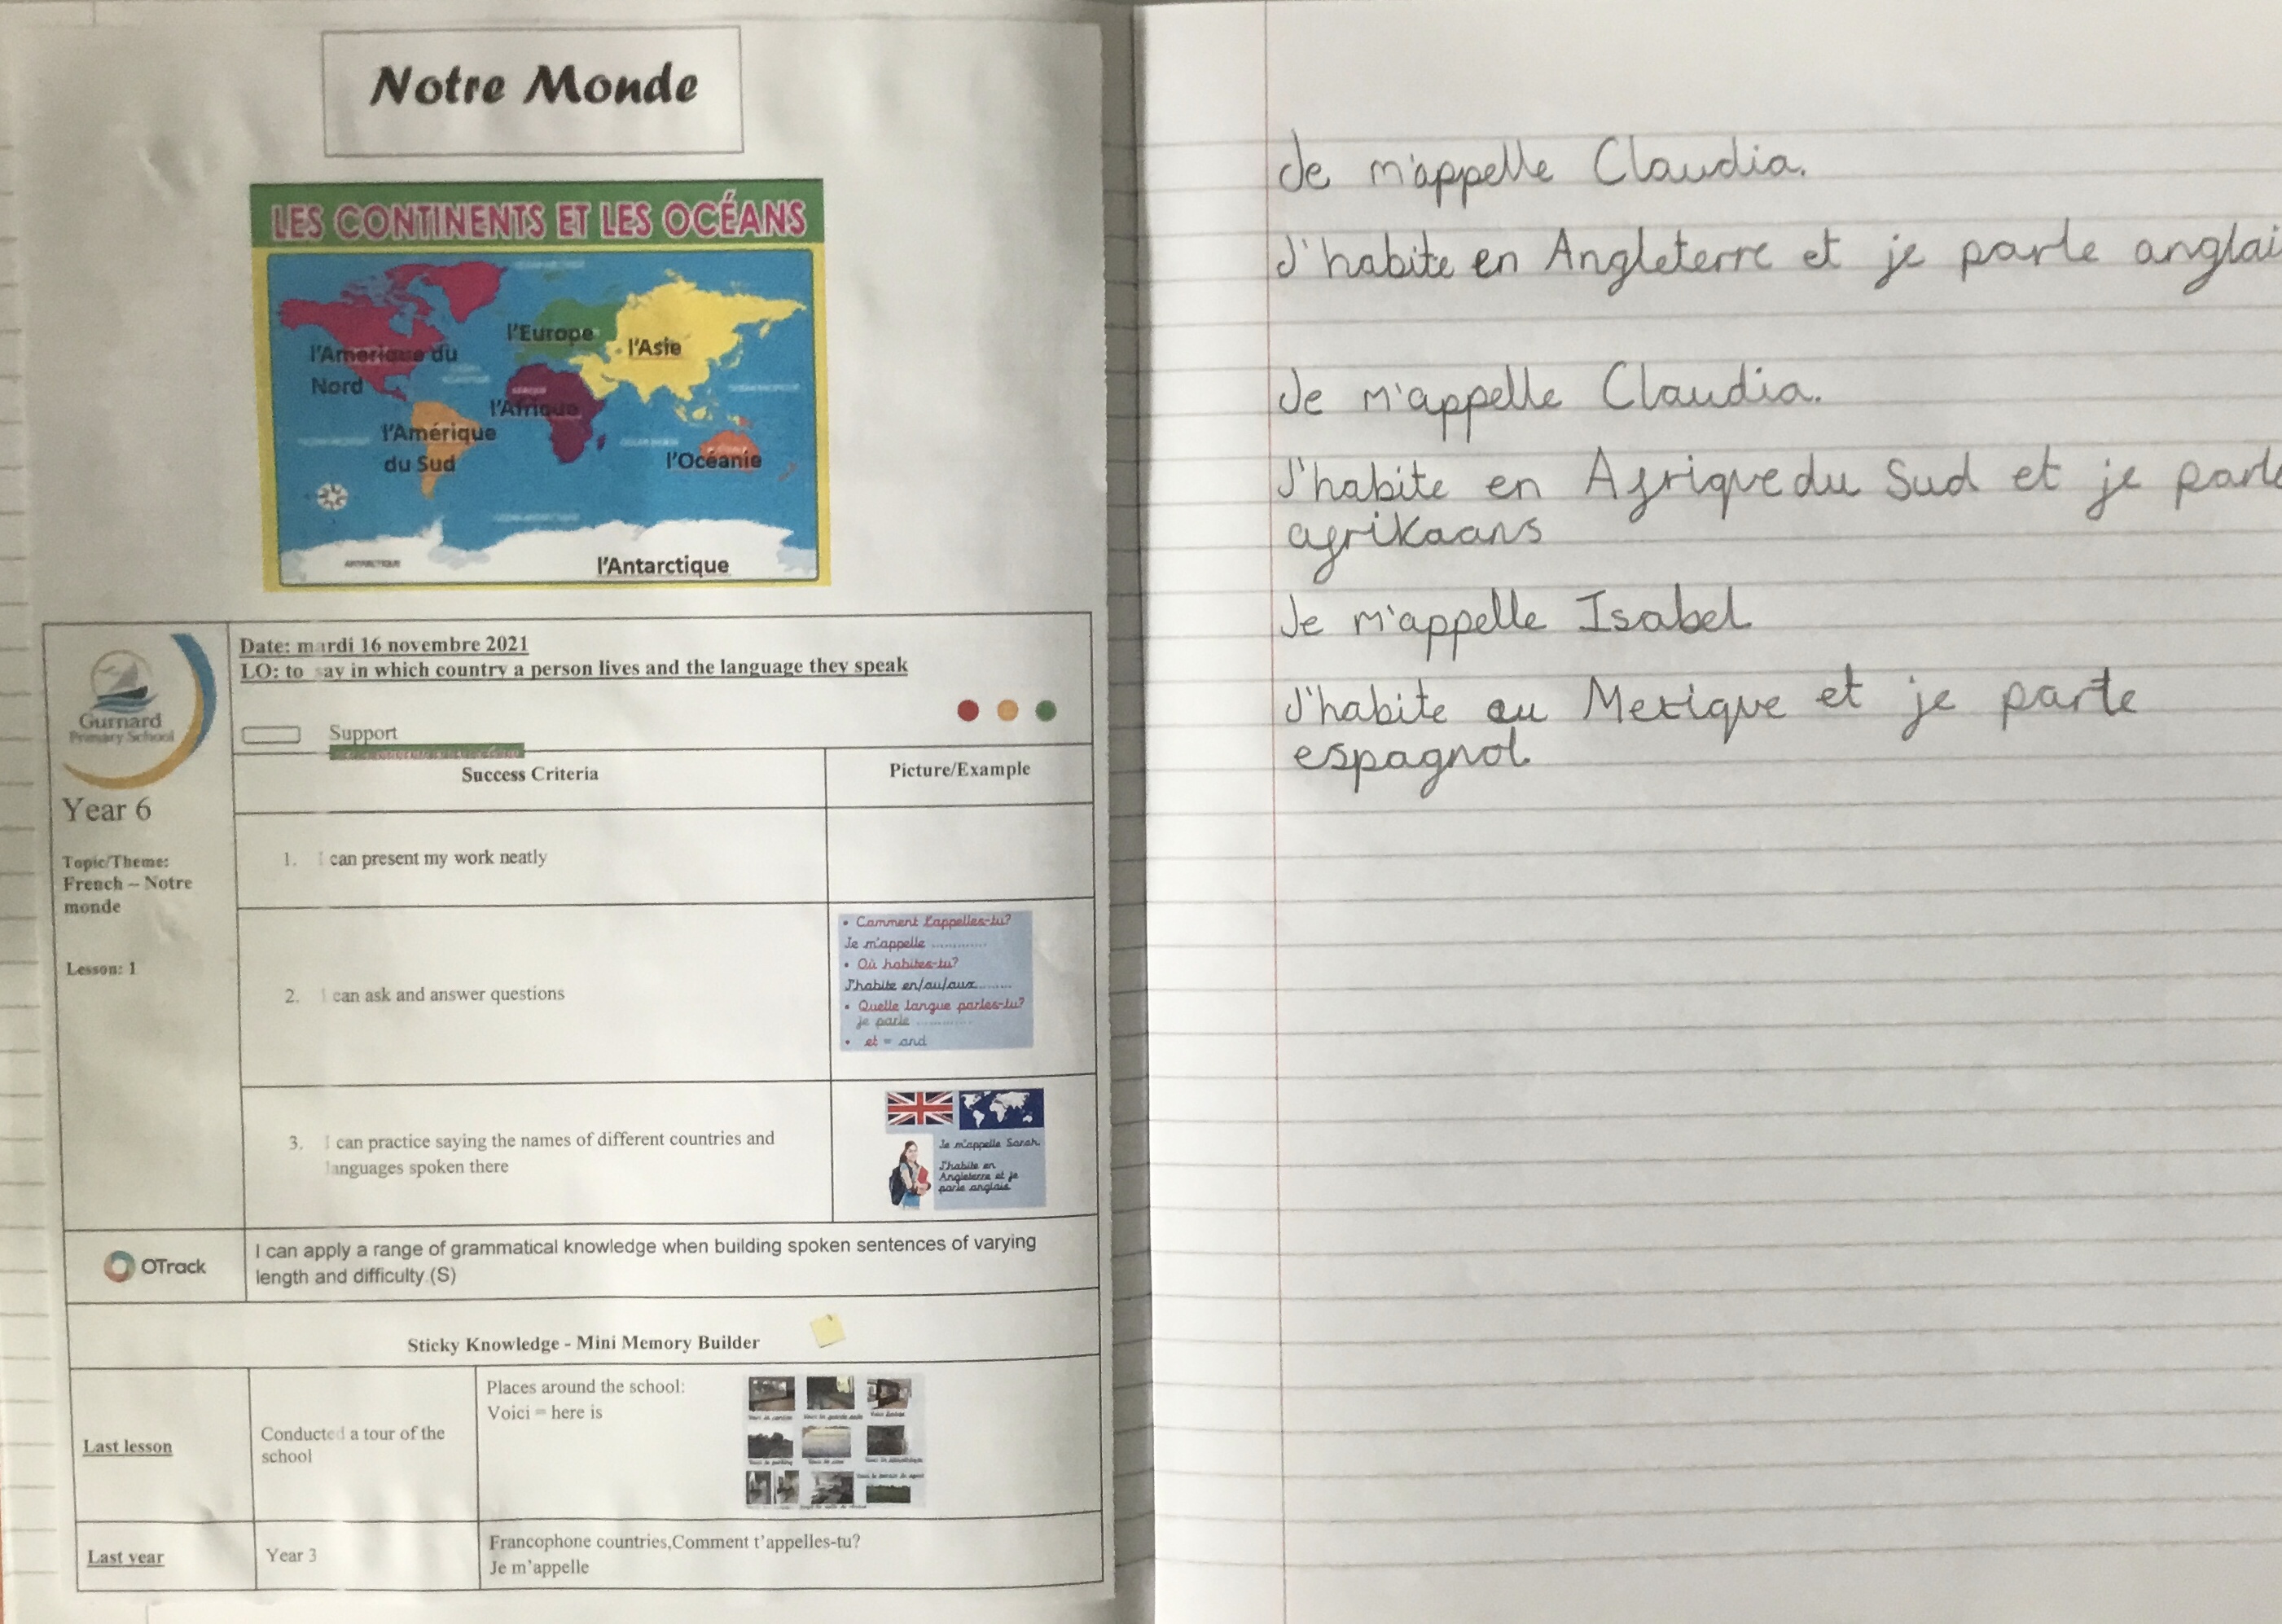 Notre Monde
LES CONTINENTS ET LES OCÉANS
l'Europe
l'Asie
l'Amerique du
Nord
l'Afrique
l'Amérique
du Sud
l'Océanie
ANTARCTIQUE
l'Antarctique
Gurnard
Primary School
Year 6
Topic/Theme:
French – Notre
monde
Lesson: 1
Date: mardi 16 novembre 2021
LO: to say in which country a person lives and the language they speak
Support
Success Criteria
Picture/Example
1. I can present my work neatly
2. I can ask and answer questions
• Comment t'appelles-tu?
Je m'appelle ............
• Où habites-tu?
J'habite en/au/aux.........
• Quelle langue parles-tu?
je parle ............
• et = and
3. I can practice saying the names of different countries and
languages spoken there
Je m'appelle Sarah.
J'habite en
Angleterre et je
parle anglais
OTrack
I can apply a range of grammatical knowledge when building spoken sentences of varying
length and difficulty.(S)
Sticky Knowledge - Mini Memory Builder
Last lesson
Conducted a tour of the
school
Places around the school:
Voici = here is
Last year
Year 3
Francophone countries,Comment t'appelles-tu?
Je m'appelle
Je m'appelle Claudia.
J'habite en Angleterre et je parle anglai
Je m'appelle Claudia.
J'habite en Afrique du Sud et je parle
afrikaans
Je m'appelle Isabel
J'habite au Mexique et je parle
espagnol.